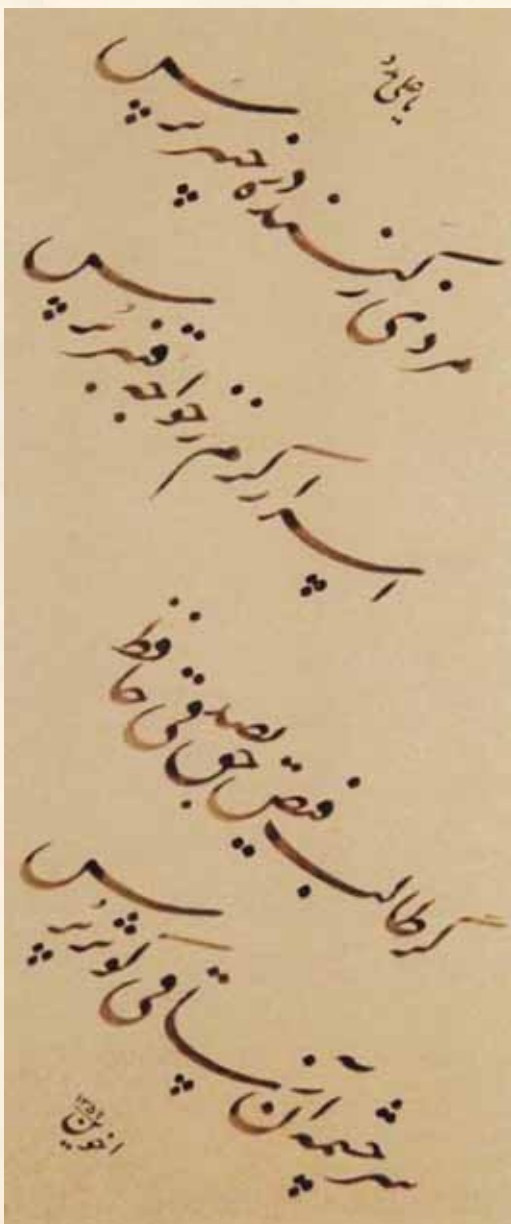 یا علی مدد
مردی ز کننده در خیبر پرس
اسرار کرم ز خواجه قنبر پرس
گر طالب فیض حق بصدقی حافظ
سرچشمه آن ز ساقی کوثر پرس
اخوین